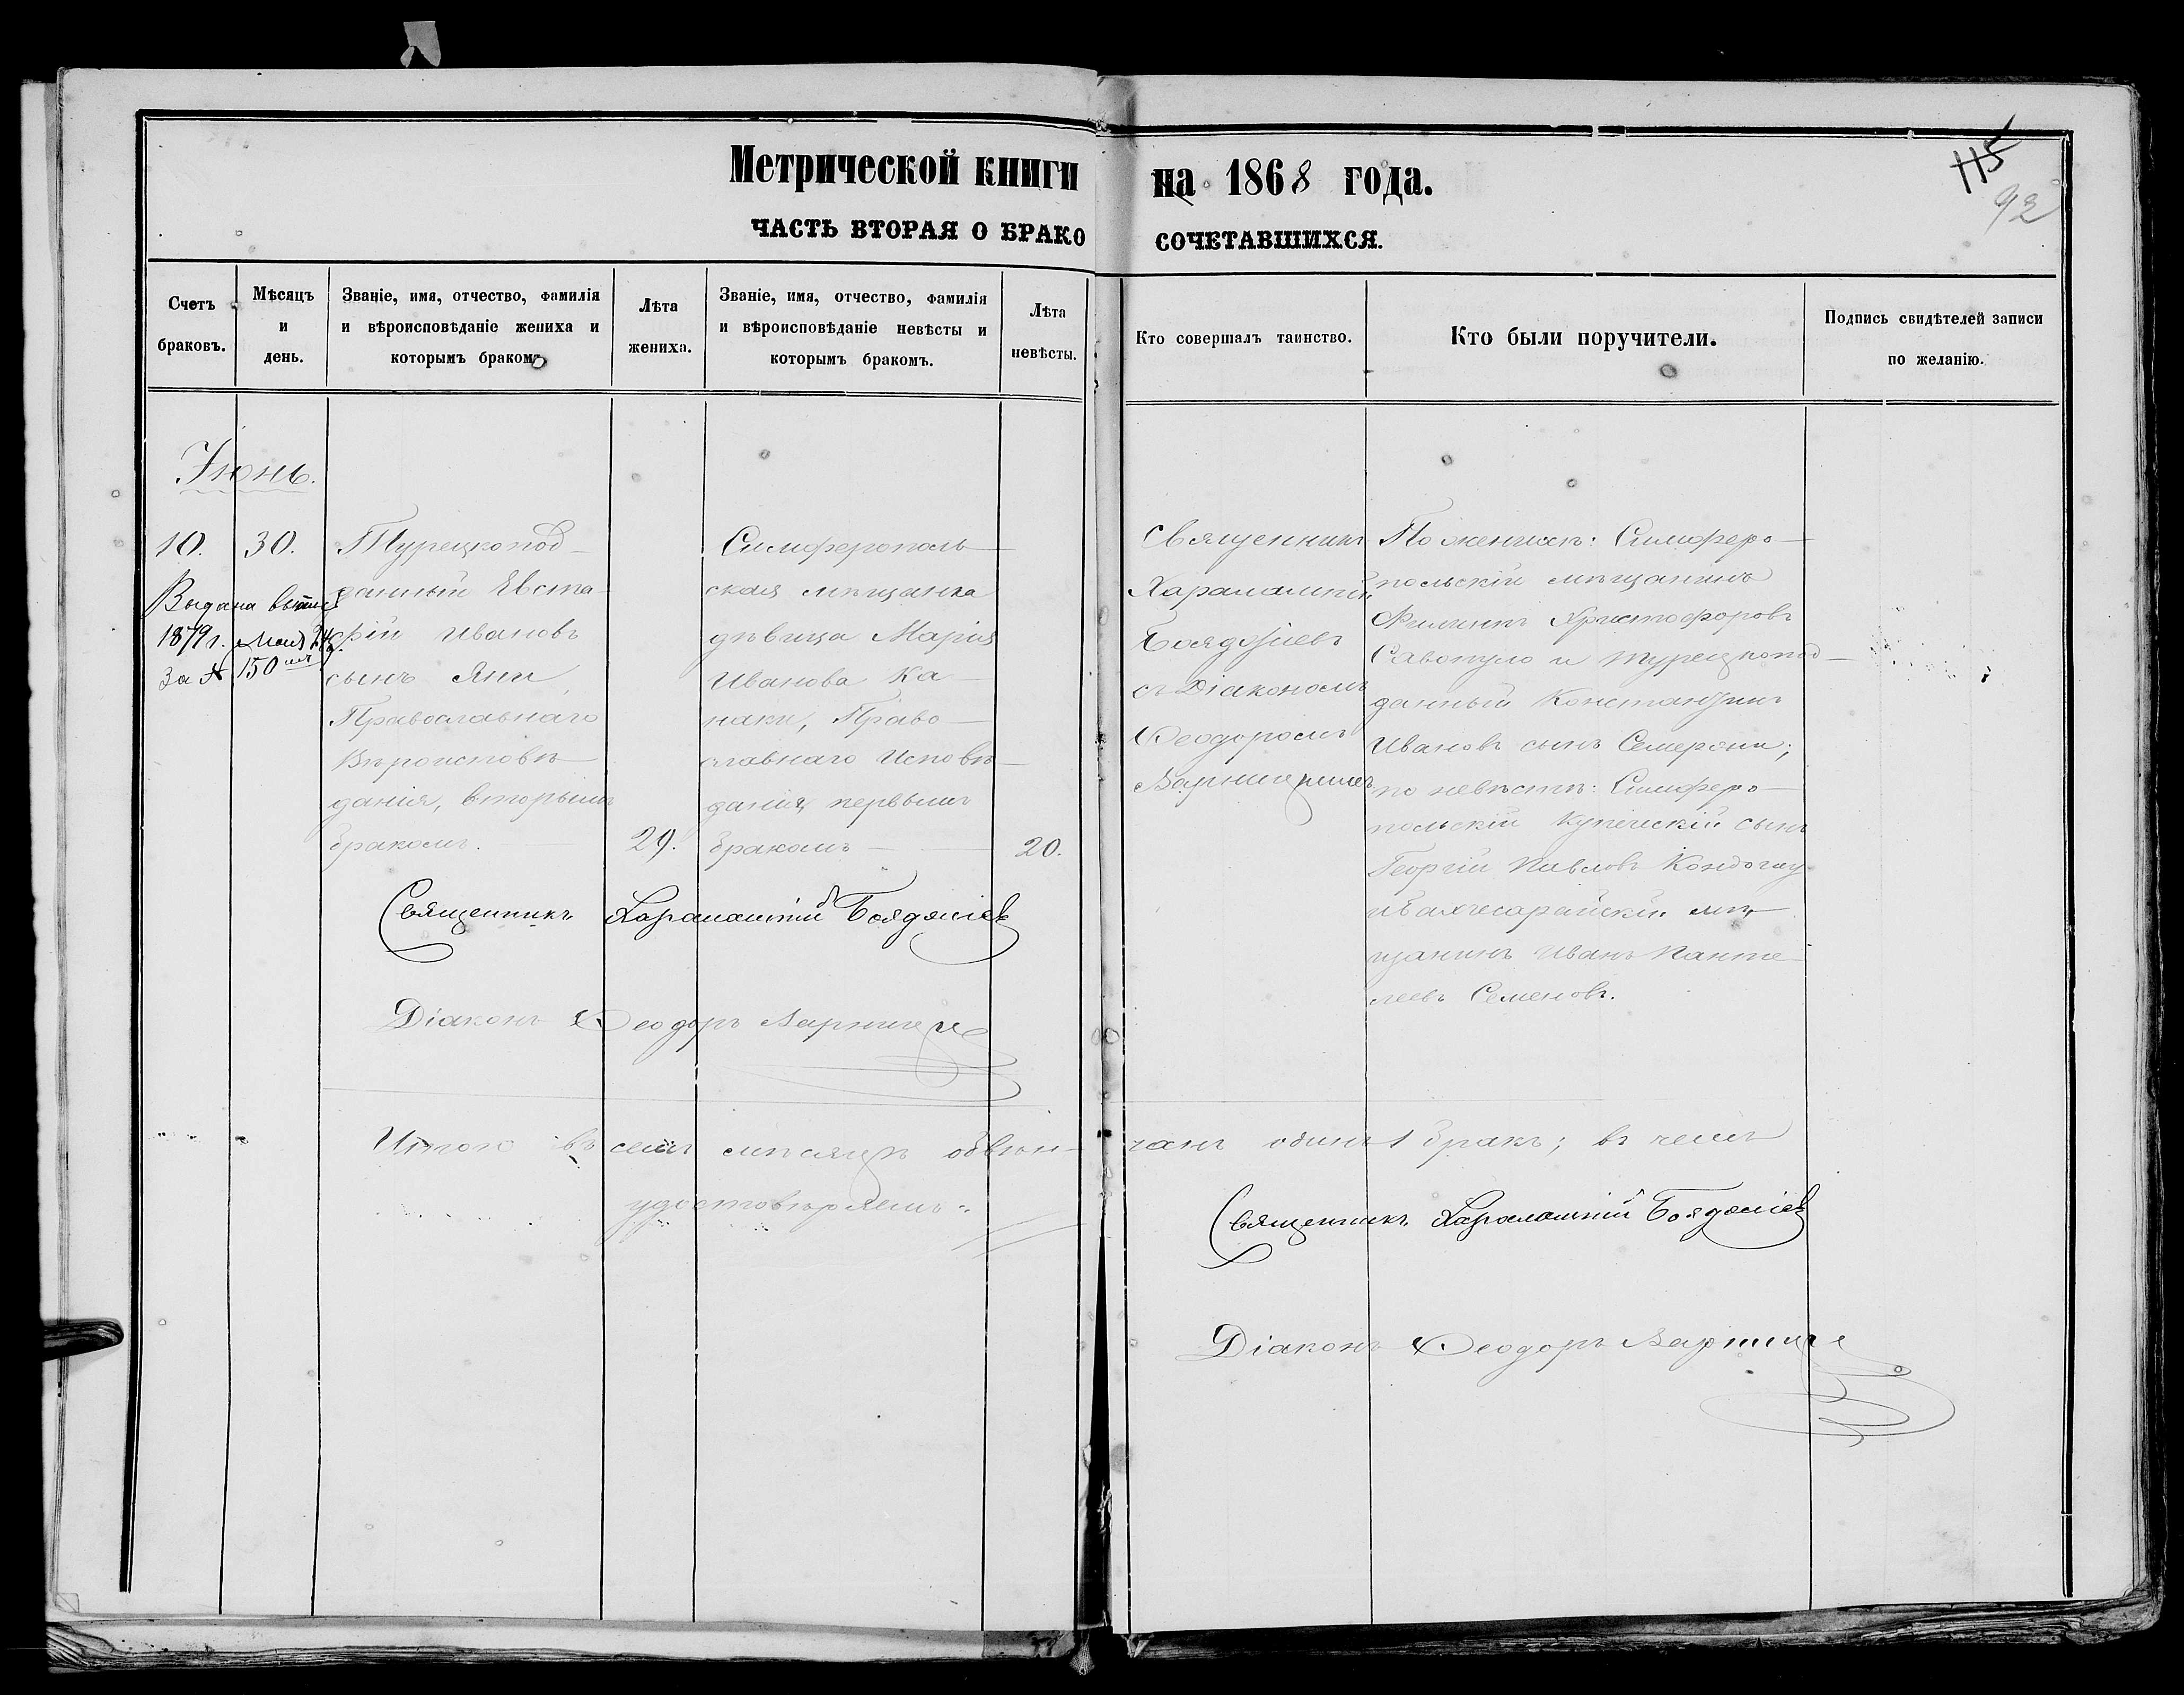 Метрической книги на 1868 года.
115
92
ЧАСТЬ ВТОРАЯ О БРАКОСОЧЕТАВШИХСЯ.
Счетъ браковъ.
Мѣсяцъ и день.
Званіе, имя, отчество, фамилія и вѣроисповѣданіе жениха и которымъ бракомъ.
Лѣта жениха.
Званіе, имя, отчество, фамилія и вѣроисповѣданіе невѣсты и которымъ бракомъ.
Лѣта невѣсты.
Кто совершалъ таинство.
Кто были поручители.
Подпись свидѣтелей записи по желанію.
Іюнь.
10.
30.
Выдана выпись
1879 г. Мая 24
За № 150
Турецкопод-
данный Евста-
фій Ивановъ
сынъ Яни,
Православнаго
Вѣроисповѣ-
данія, вторымъ
бракомъ.
29.
Симферополь-
ская мѣщанка
дѣвица Марія
Иванова Ка-
наки, Право-
славнаго Исповѣ-
данія, первымъ
бракомъ
20.
Священникъ
Харалампій
Бояджіевъ
съ Діакономъ
Ѳеодоромъ
По женихѣ: Симферо-
польскій мѣщанинъ
Филиппъ Христофоровъ
Савопуло и турецкопод-
данный Константинъ
Ивановъ сынъ Семерджи;
по невѣстѣ: Симферо-
польскій купеческій сынъ
Георгій Павловъ
и Бахчисарайскій мѣ-
щанинъ Иванъ Панте-
леевъ Семеновъ.
Священникъ Харалампій Бояджіевъ
Діаконъ Ѳеодоръ
Итого въ семъ мѣсяцѣ обвѣн-чанъ одинъ 1 бракъ; въ чемъ
удостовѣряемъ:
Священникъ Харалампій Бояджіевъ
Діаконъ Ѳеодоръ